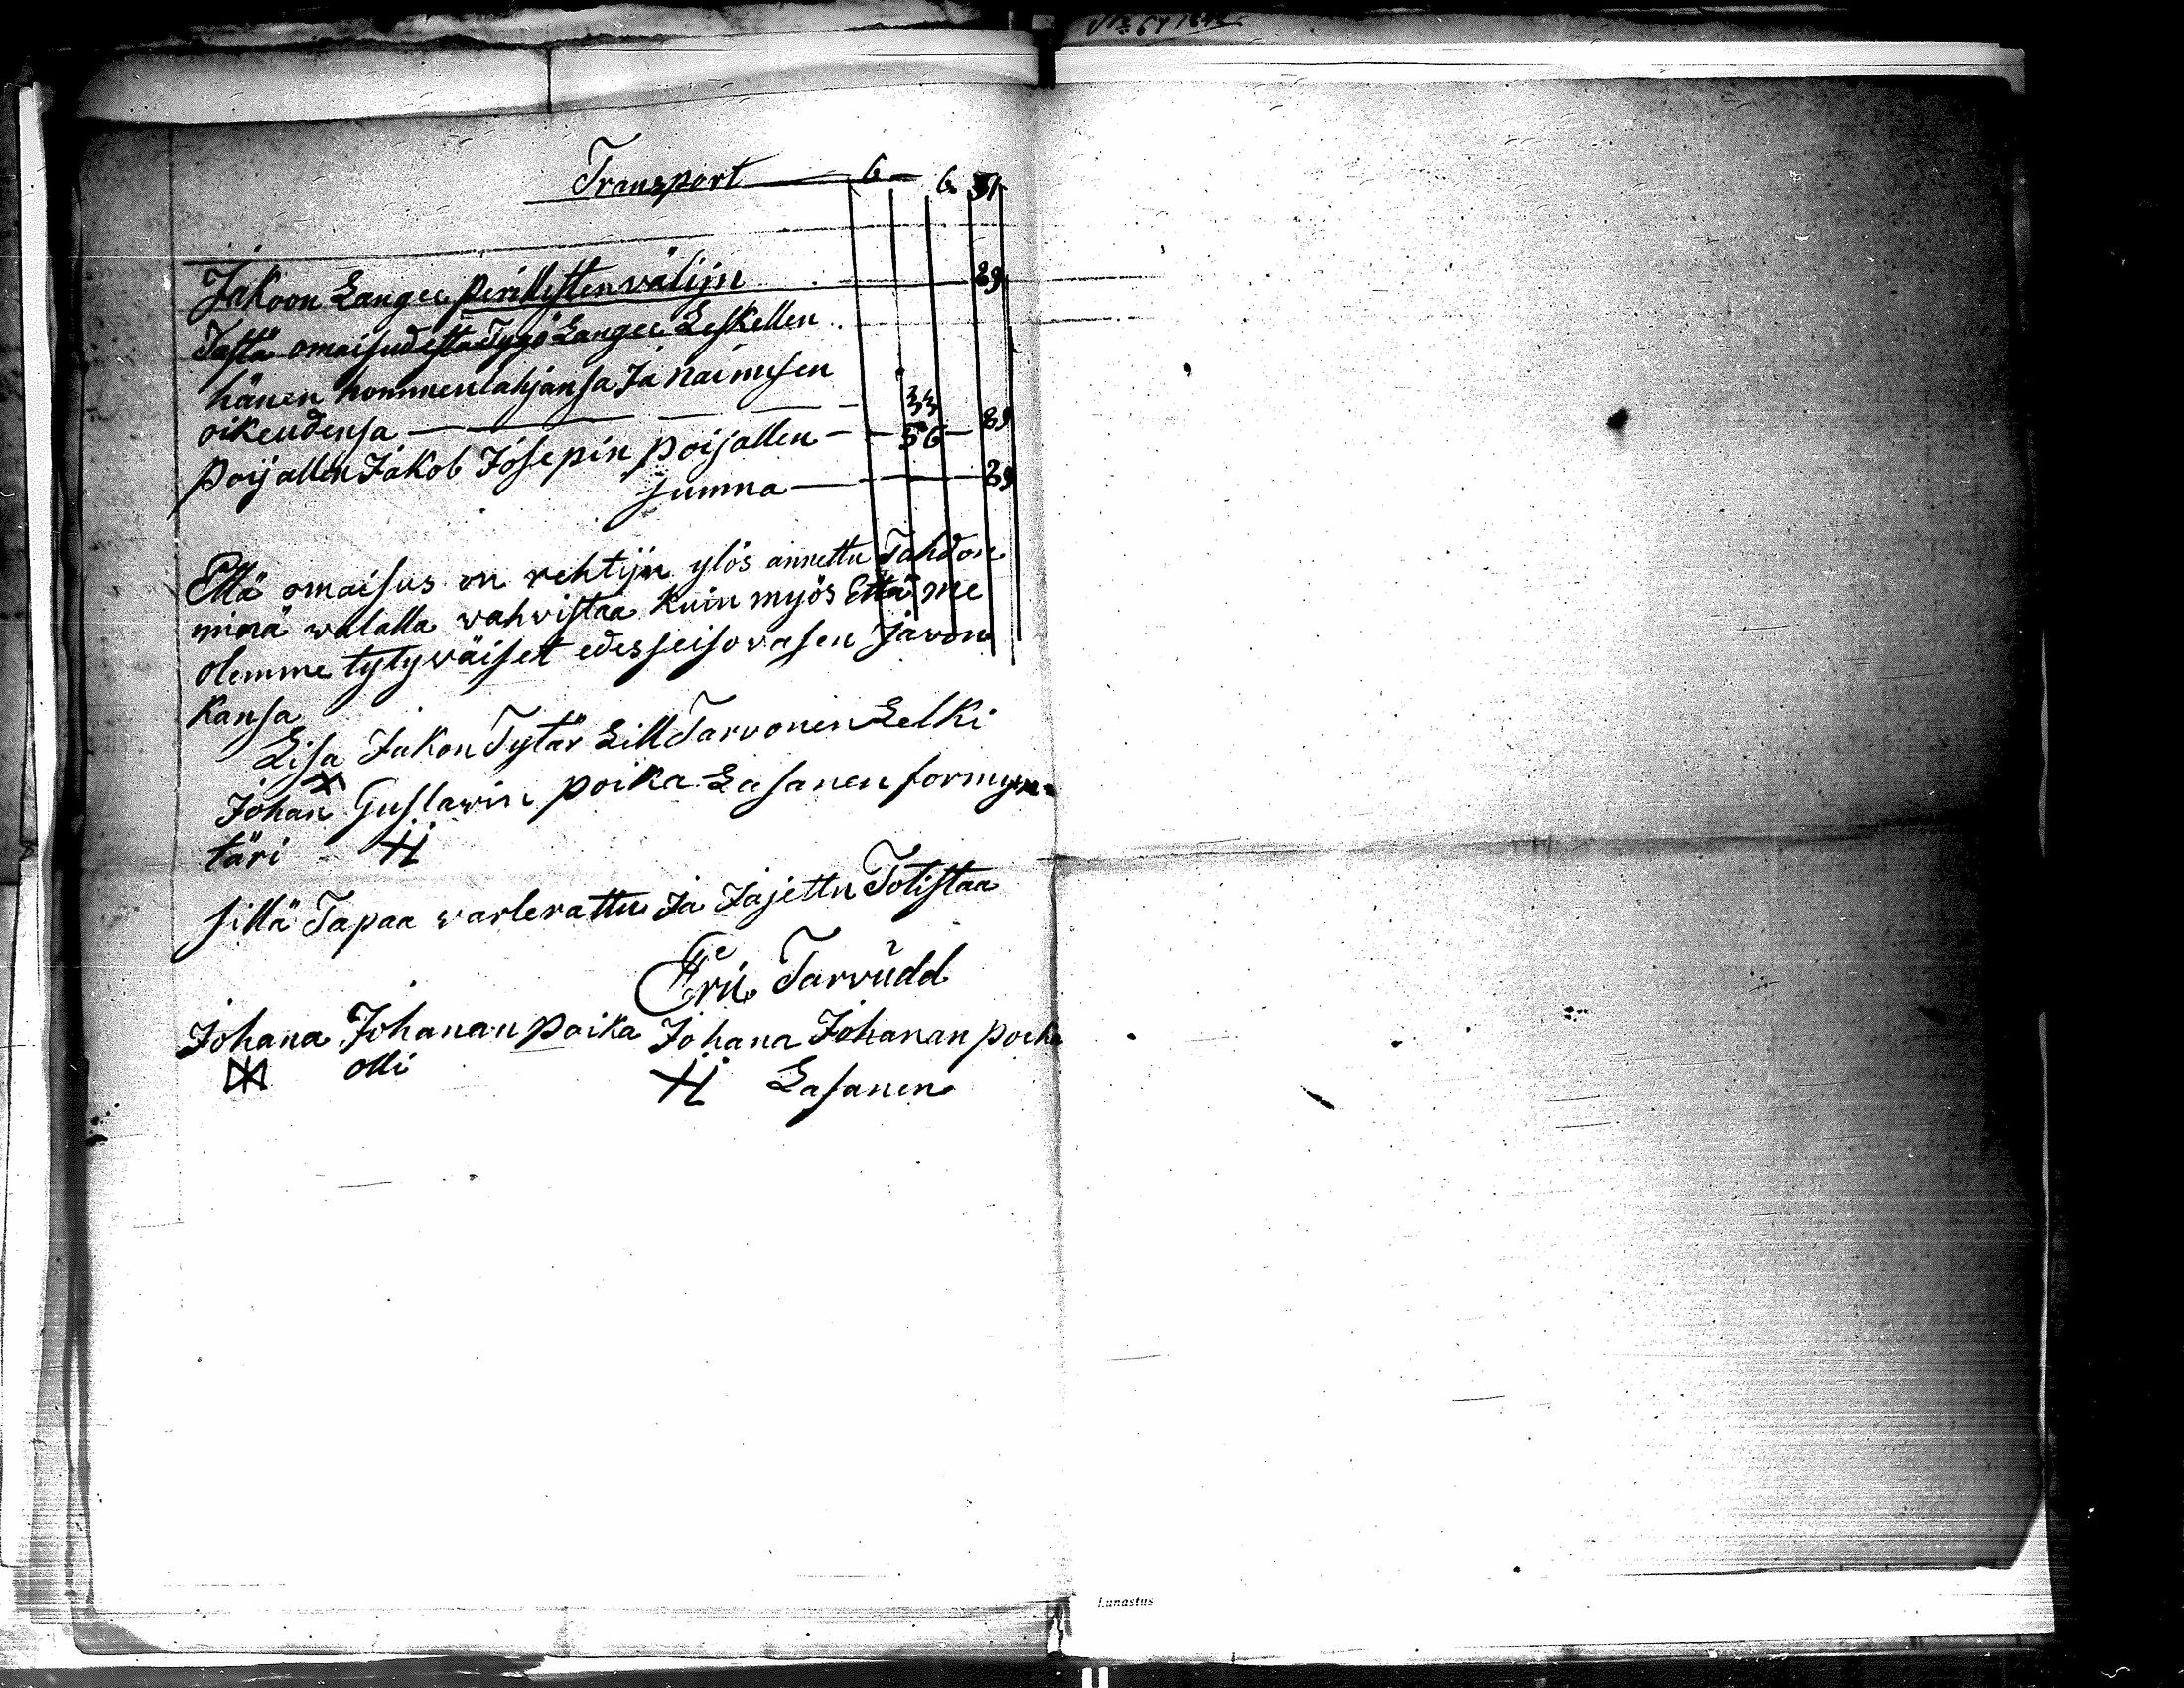 Transport — 6 — 6 51
Jakoon Langee perillisten välijn — 29
Tästä omaisudesta Tygö Langee Leskellen
hänen huomenlahjansa Ja Naimisen
oikeudensa — 33
poijallen Jakob Josepin poijallen — 56 — 29
summa — 29
Että omaisus on rehtijn ylös annettu Tahdon
minä walalla vahvistaa kuin myös Että me
olemme tytyväiset edesseisovasen javon
kansa
Lisa Jakon Tytär Lill Tarvonen Leski
Johan Gustawin poika Lasanen formyn-
täri
sillä Tapaa varlerattu Ja Jajettu Totistaa
Tarvudd
Johana Johanan poika Johana Johanan poika
olli Lasanen
Lunastus